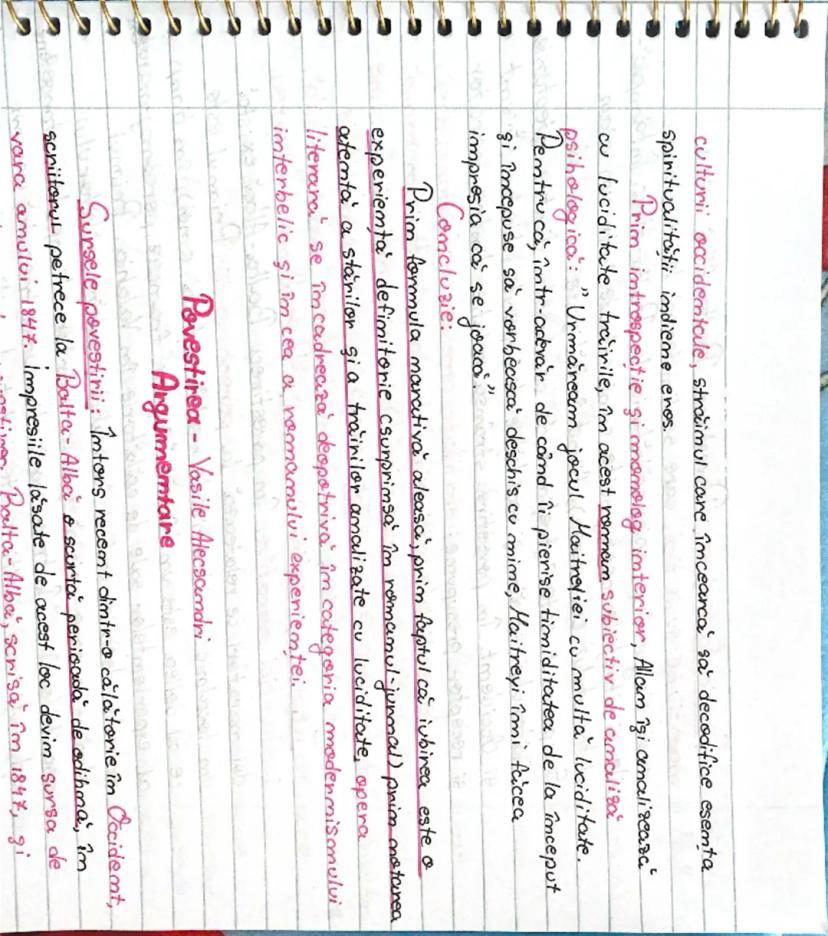 culturii occidentale, străinul care încearcă să decodifice esența
spiritualității indiene eres.
Prin introspecție și monolog interior, Allan își analizează
cu luciditate trăirile, în acest roman subiectiv de analiză
psihologică: "Urmăream jocul Maitreyiei cu multă luciditate.
Pentru că, într-adevăr de când îi pierise timiditatea de la început
și începuse să vorbească deschis cu mine, Maitreyi îmi făcea
impresia că se joacă."
Concluzie:
Prin formula narativă aleasă, prin faptul că iubirea este o
experiență definitorie csurprinsă în romanul-jurnal) prin notarea
atentă a stărilor și a trăirilor analizate cu luciditate, opera
literară se încadrează deopotrivă în categoria modernismului
interbelic și în cea a romanului experienței.
Povestirea - Vasile Alecsandri
Argumentare
Sursele povestirii: Întors recent dintr-o călătorie în Occident,
scriitorul petrece la Balta-Albă o scurtă perioadă de odihnă, în
vara anului 1847. Impresiile lăsate de acest loc devin sursa de
Balta-Albă, scrisă în 1847, și